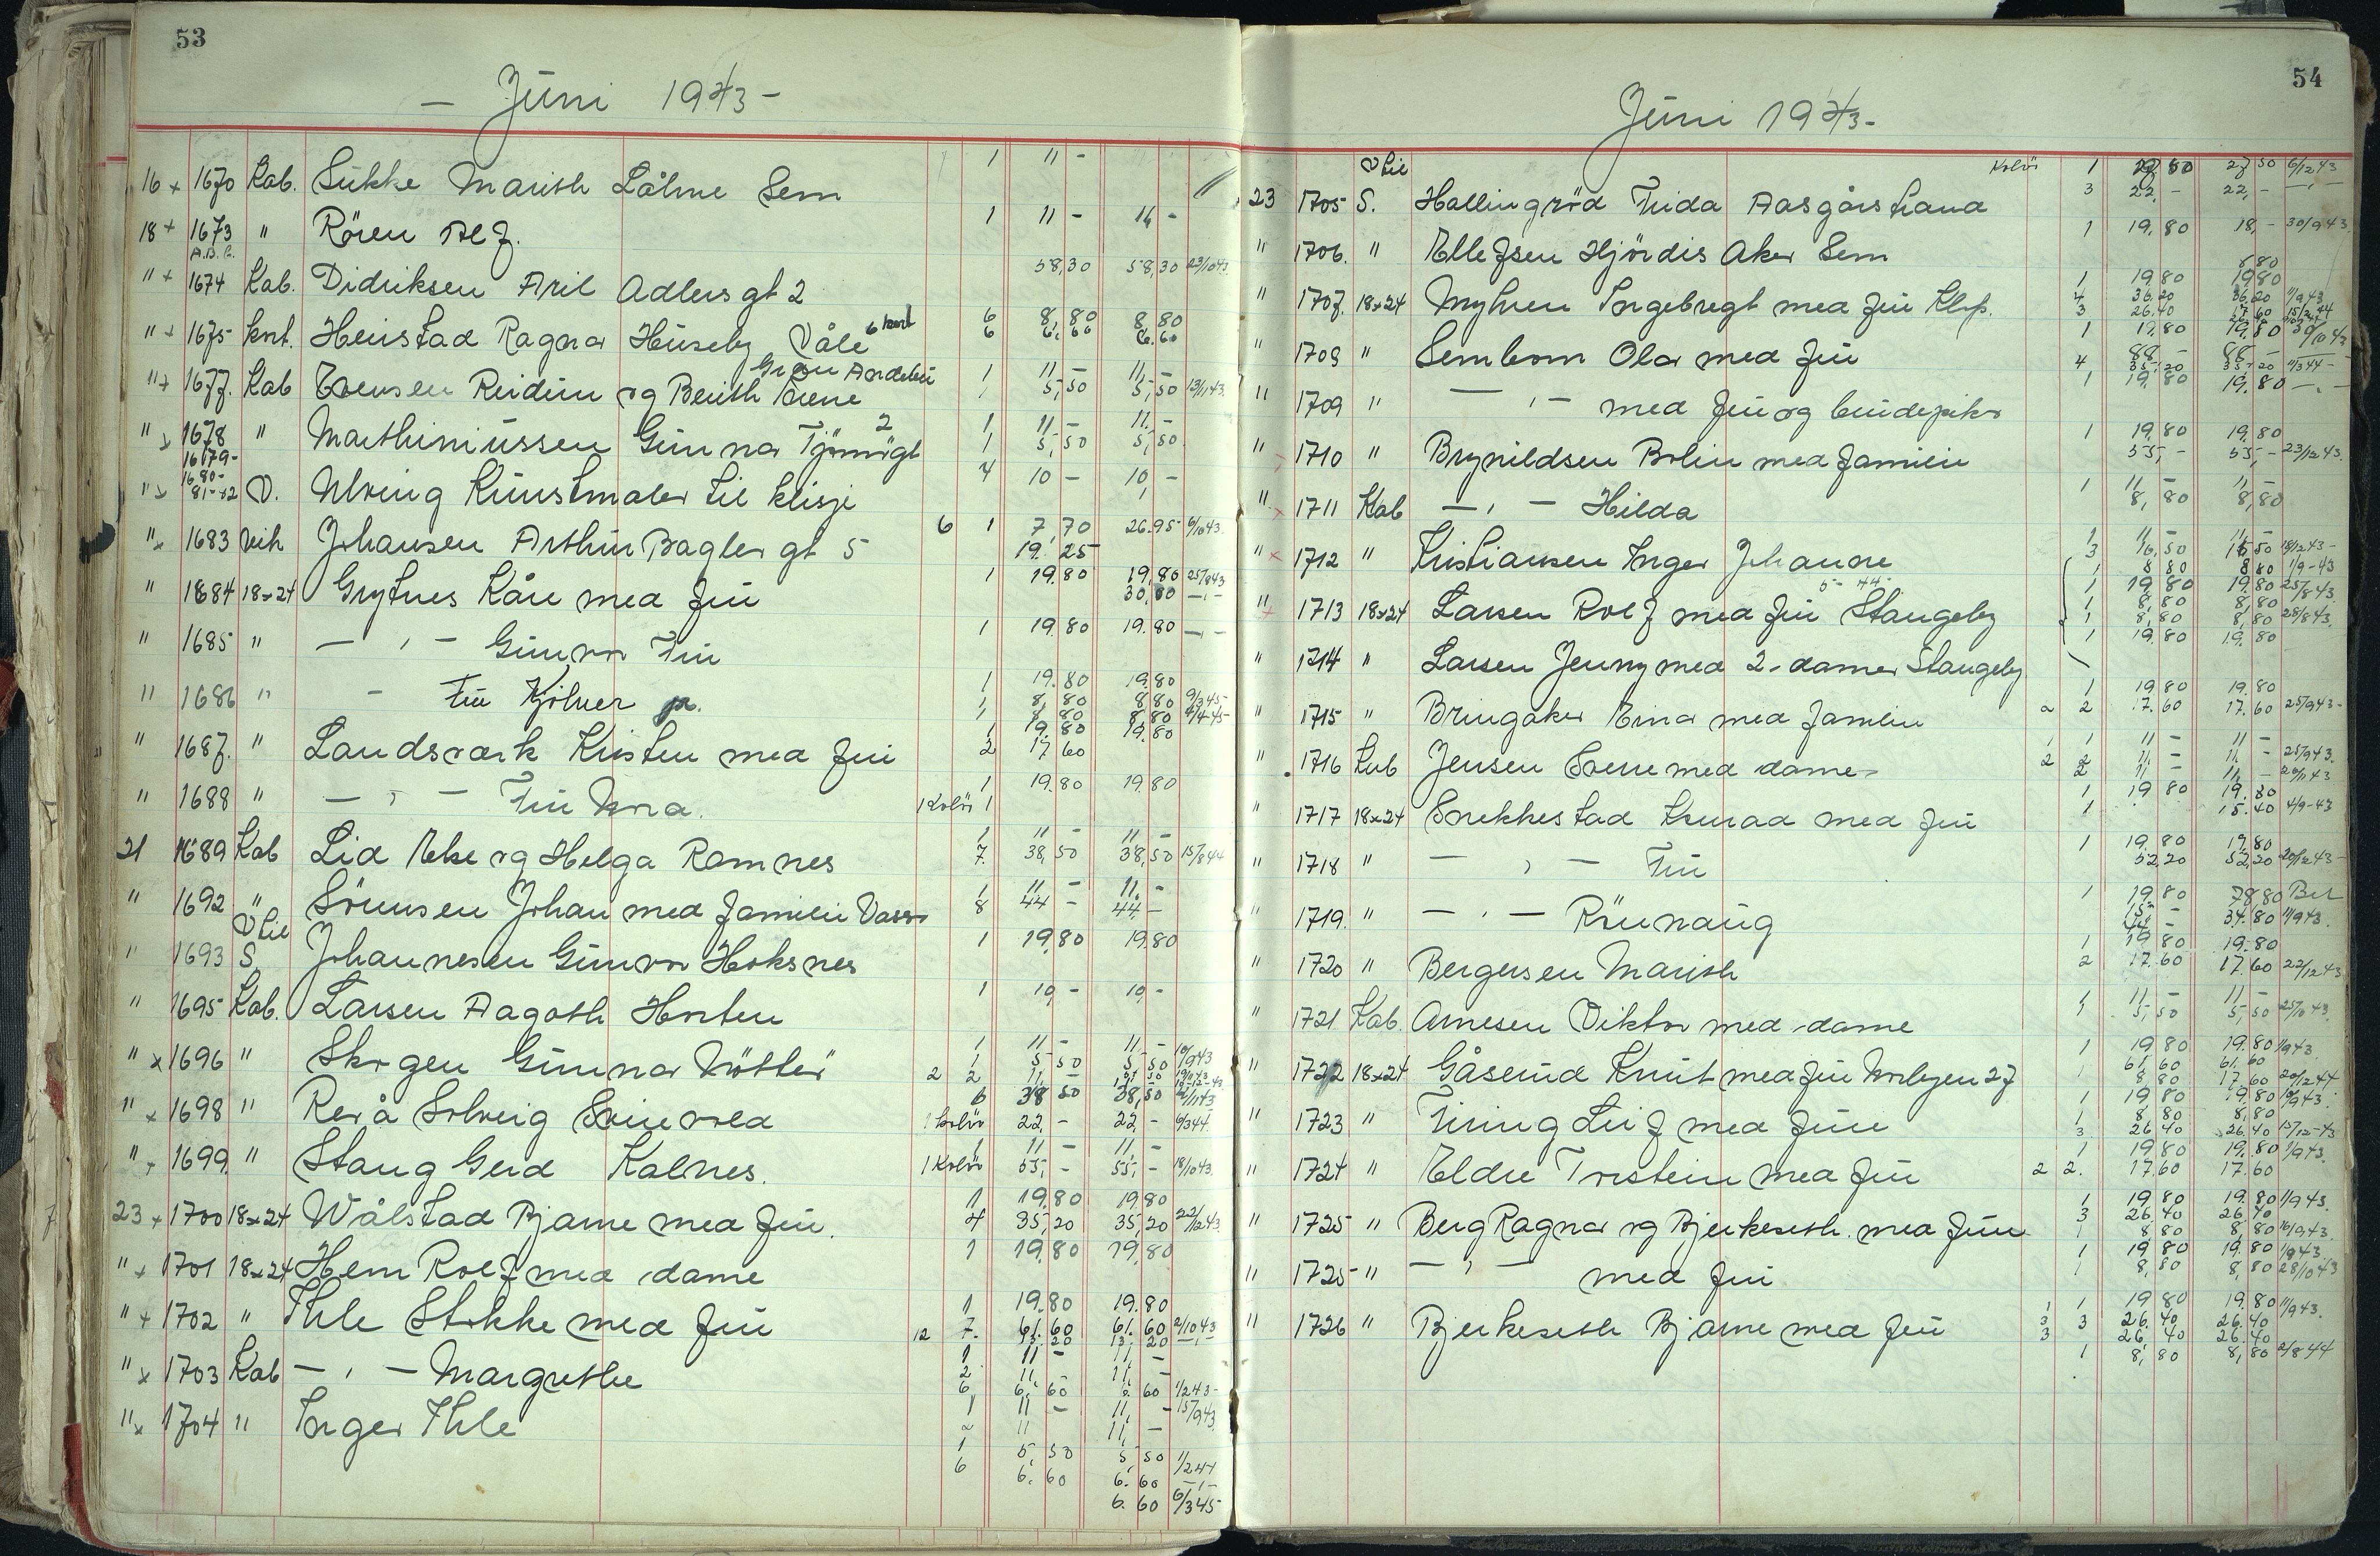 53
- Juni 1943 -
1 11 -
16 x 1670 Kab. Sukke Marith Låhne Sem
1 11 - 11 -
18 + 1673 " Rören Alf.
A.B.C.
58,30 58,30 23/10 43
" + 1674 Kab. Didriksen Aril Adlers gt 2
6 8,80 8,80
" + 1675 knt. Heistad Ragnar Huseby Våle 6 knt
6 6,60 6.60
Gran Andebu 1 11 - 11, -
" + 1677. Kab Evensen Reidun og Berith Irene 1 5,50 5,50 13/11 43
2 1 11 - 11, -
" x 1678 " Marthiniussen Gunnar Tjömegt 1 5,50 5,50
1679-
1680-
4 10 - 10, -
" x 81-82 V. Ulving Kunstmaler til klisje
6 1 7,70 26.95 6/10 43
" x 1683 vik Johansen Arthur Bagler gt 5 19. 25
1 19.80 19,80 25/8 43
" 1684 18x24 Grytnes Kåre med fru 30,80 -,-
1 19.80 19.80 -,-
" 1685 " - , - Gunvor Fru
1 19.80 19.80
" 1686 " - Fru Kjölner pr. 1 8,80 8,80 9/3 45
1 8,80 8,80 9/4 45
1 19,80 19.80
" 1687. " Landsværk Kristen med fru 2 17,60
1 19.80 19,80
" 1688 " - , - Fru Nora. 1 Kolör 1
1 11 - 11 -
21 1689 Kab Lid Else og Helga Ramnes 7. 38,50 38,50 15/8 44
1 11 - 11. -
" 1692 " Sörensen Johan med familie Vasser 8 44 - 44 -
V til
1 19,80 19.80
" 1693 S. Johannesen Gunvor Hoksnes
1 10, - 10, -
" 1695 Kab. Larsen Aagoth Horten
1 11 - 11, -
" x 1696 " Skogen Gunnar Nötterö 1 5,50 5,50 10/9 43
2 2 11, -
6 38 50 38,50
" x 1698 " Rerå Solveig Svinevold 1 kolör 22, - 22, - 6/3 44
1 11 - 11, -
" + 1699. " Stang Gerd Kalnes. 1 Kolör 55, - 55, - 18/10 43
1 19,80 19,80
23 + 1700 18x24 Wålstad Bjarne med fru. 4 35,20 35,20 22/12 43
1 19,80 19,80
" + 1701 18x24 Hem Rolf med dame
1 19.80 19.80
" + 1702 " Ihle Stokke med fru 12 7. 61.60 61.60 2/10 43
13.20 13.20 -,-
1 11 - 11, -
" x 1703 Kab - , - Margrethe 2 11, - 11, -
6, 6,60 6.60 1/2 43-
1 11 - 11, - 15/9 43
" x 1704 " Inger Ihle 2 11 11, -
1 5,50 5,50 1/2 44
6 6,60 6,60 -,-
6.60 6/3 45-
54
Juni 1943-
V til Kolör 1 27,50 27,50 6/12 43
23 1705 S. Hallingröd Frida Aasgårstrand 3 22, - 22, - -,-
1 19,80 18, - 30/9 43
" 1706. " Ellefsen Hjördis Aker Sem
8,80
1 19.80 19.80
" 1707 18x24 Myhren Ingebregt med fru Klp. 4 36,20 36,20 1/9 43
3 26,40 17,60 15/2 44
1 19,80 19,80 30/10 43
" 1708 " Sembom Olav med fru 88 - 88 -
4 35,20 35,20 1/3 44 -
1 19.80 19.80 -,-
" 1709 " - , - med fru og brudepike
1 19,80 19,80
" 1710 " Brynildsen Bolin med familie 55, - 55, - 23/12 43
1 11 - 11 -
" 1711 Kab - , - Hilda 8,80 8,80
1 11 - 11 -
" x 1712 " Kristiansen Inger Johanne 3 16,50 16,50 18/12 43-
1 8 80 8 80 1/9-43
5- 44-
1 19,80 19.80 25/8 43
" 1713 18x24 Larsen Rolf med fru Slangeby 1 8,80 8,80
1 8,80 8,80 28/8 43.
1 19,80 19.80
" 1714 " Larsen Jenny med 2-damer Slangeby
1 19.80 19.80
" 1715 " Bringaker Einar med familie 2 2 17.60 17.60 25/9 43-
1 1 11 - 11 -
" 1716 Kab Jensen Sverre med dame- 2 2 11, - 11, - 25/9 43
2 11 - 11, - 20/11 43
1 19 80 19.80
" 1717 18x24 Snekkestad Konrad med fru 1 15.40 4/9-43
1 19.80 19,80
" 1718 " - , - Fru 52,20 52,20 20/12 43-
1 19,80 78,80 Bet
" 1719. " - , - Rönnaug 34.80 11/9 43.
44 -
1 19 80 19.80
" 1720 " Bergersen Marith 2 17.60 17.60 22/12 43
1 11 - 11 -
" 1721 Kab. Arnesen Viktor med dame 5,50 5,50 25/10 43
1 19.80 19.80 1/9 43
" 1722 18x24 Gåserud Knut med fru Norbyen 27 1 61,60 61.60
8,80 17.60 20/12 44
1 19 80 19.80
" 1723 " Tiring Leif med frue 1 8,80 8,80
3 26 40 26.40 15/12-43
1 19.80 19.80 1/9 43.
" 1724 " Eldre Torstein med fru 2 2. 17.60 17.60
1 19,80 19.80 1/9 43.
" 1725 " Berg Ragnar og Bjerkeseth med frue 3 26.40 26.40
1 8,80 8,80 16/9 43.
1 19,80 19.80 1/9 43.
" 1725 " - , - med fru 1 8,80 8,80 28/10 43
1 1 19.80 19.80 11/9 43.
" 1726 " Bjerkeseth Bjarne med fru 3 3 26.40 26.40
3 26,40 26.40
1 8,80 8,80 2/8 44